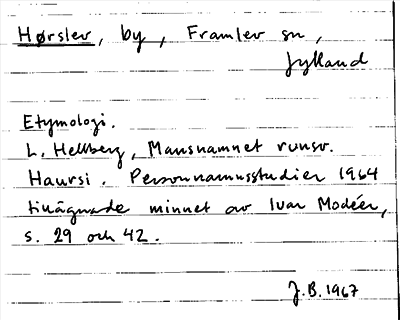 Hørslev, by, Framlev sn,
Jylland
Etymologi.
L. Hellberg, Mansnamnet runsv.
Haursi. Personnamnsstudier 1964
tillägnade minnet av Ivar Modéer,
s. 29 och 42.
J.B. 1967